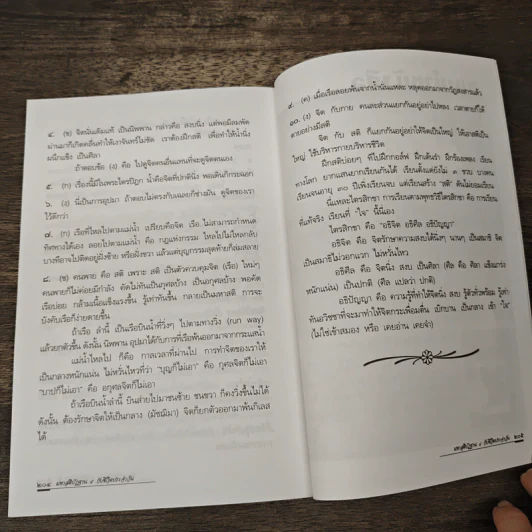 ๔. (ข) จิตนั้นเดิมแท้ เป็นนิพพาน กล่าวคือ สงบนิ่ง แต่พอมีลมพัด
ผ่านมาก็เกิดคลื่นทำให้เราจับทรีไม่ชัด เราต้องฝึกสติ เพื่อทำให้น้ำนิ่ง
ผนึกแข็ง เป็นศิลา
ถ้าตอบข้อ (ง) คือ ไปดูจิตคนอื่นแทนที่จะดูจิตตนเอง
๕. (ก) เรื่องนี้มีในพระไตรปิฎก น้ำคือจิตที่ปกตินิ่ง พอเดินก็กระฉอก
๖. (ง) นี่เป็นการอุปมา ถ้าตอบไม่ตรงกับเฉลยก็ช่างมัน ดูจิตของเรา
ไว้ดีกว่า
๗. (ก) เรือที่ไหลไปตามแม่น้ำ เปรียบคือจิต เรือ ไม่สามารถกำหนด
ทิศทางได้เอง ลอยไปตามแม่น้ำ คือ กฎแห่งกรรม ไหลไปไม่ไหลกลับ
บางทีอาจไปติดอยู่ฝั่งซ้าย หรือฝั่งขวา แล้วแต่บุญกรรมสุดท้ายก็ล่มสลาย
๘. (ข) คนพาย คือ สติ เพราะ สติ เป็นตัวควบคุมจิต (เรือ) ใหม่ๆ
คนพายก็ไม่ค่อยมีกำลัง คัดไม่ทันเป็นกุศลบ้าง เป็นอกุศลบ้าง พอคัด
เรือบ่อย กล้ามเนื้อแข็งแรงขึ้น รู้เท่าทันขึ้น กลายเป็นมหาสติ การจะ
บังคับเรือก็ง่ายดายขึ้น
ถ้าเรือ ลำนี้ เป็นเรือบินน้ำที่วิ่งๆ ไปตามทางวิ่ง (run way)
แล้วยกตัวขึ้น ดังนั้น นิพพาน อุปมาได้กับการที่เรือพ้นออกมาจากกระแสน้ำ
แม่น้ำไหลไป ก็คือ กาลเวลาที่ผ่านไป การทำจิตของเราให้
เป็นกลางหนักแน่น ไม่หวั่นไหวที่ว่า "บุญก็ไม่เอา" คือ กุศลจิตก็ไม่เอา
"บาปก็ไม่เอา" คือ อกุศลจิตก็ไม่เอา
ถ้าเรือบินน้ำลำนี้ บินส่ายไปมาชนซ้าย ชนขวา ก็คงวิ่งขึ้นไม่ได้
ดังนั้น ต้องรักษาจิตให้เป็นกลาง (มัชฌิมา) จิตก็ยกตัวออกมาพ้นกิเลส
ได้
๒๐๔ มหาสติปัฏฐาน ๔ กับชีวิตประจำวัน
๙. (ค) เมื่อเรือลอยพ้นจากน้ำนั่นแหละ หลุดออกมาจากวัฏสงสารแล้ว
๑๐. (ง) จิต กับกาย คนละส่วนแยกกันอยู่อย่าไปหลง เวลาตายก็ได้
ตายอย่างมีสติ
จิต กับ สติ ก็แยกกันอยู่อย่าให้จิตเป็นใหญ่ ให้เอาสติเป็น
ใหญ่ ใช้บริหารกายบริหารชีวิต
ฝึกสติบ่อยๆ ก็ไปฝึกกอล์ฟ ฝึกเต้นรำ ฝึกร้องเพลง เรียน
ทางโลก ยากแสนยากเรียนกันได้ เรียนตั้งแต่ยังไม่ ๓ ขวบ บางคน
เรียนจนอายุ ๓๐ ปีเพิ่งเรียนจบ แต่เรียนสร้าง "สติ" ดันไม่ยอมเรียน
นี่แหละไตรสิกขา การเรียนตามพุทธวิธีไตรสิกขา คือ การเรียน
ที่แท้จริง เรียนที่ "ใจ" นี้นี่เอง
ไตรสิกขา คือ "อธิจิต อธิศีล อธิปัญญา"
อธิจิต คือ จิตรักษาความสงบได้นิ่งๆ นานๆ เป็นสมาธิ จิต
เป็นสมาธิไม่วอกแวก ไม่หวั่นไหว
อธิศีล คือ จิตนิ่ง สงบ เป็นศิลา (ศีล คือ ศิลา แข็งแกร่ง
หนักแน่น) เป็นปกติ (ศีล แปลว่า ปกติ)
อธิปัญญา คือ ความรู้ที่ทำให้จิตนิ่ง สงบ รู้ตัวทั่วพร้อม รู้เท่า
ทันอวิชชาที่จะมาทำให้จิตกระเพื่อมตื่น เบิกบาน เป็นกลาง เข้า "ใจ"
(ไม่ใช่เข้าสมอง หรือ เคยอ่าน เคยจำ)
มหาสติปัฏฐาน ๔ กับชีวิตประจำวัน ๒๐๕